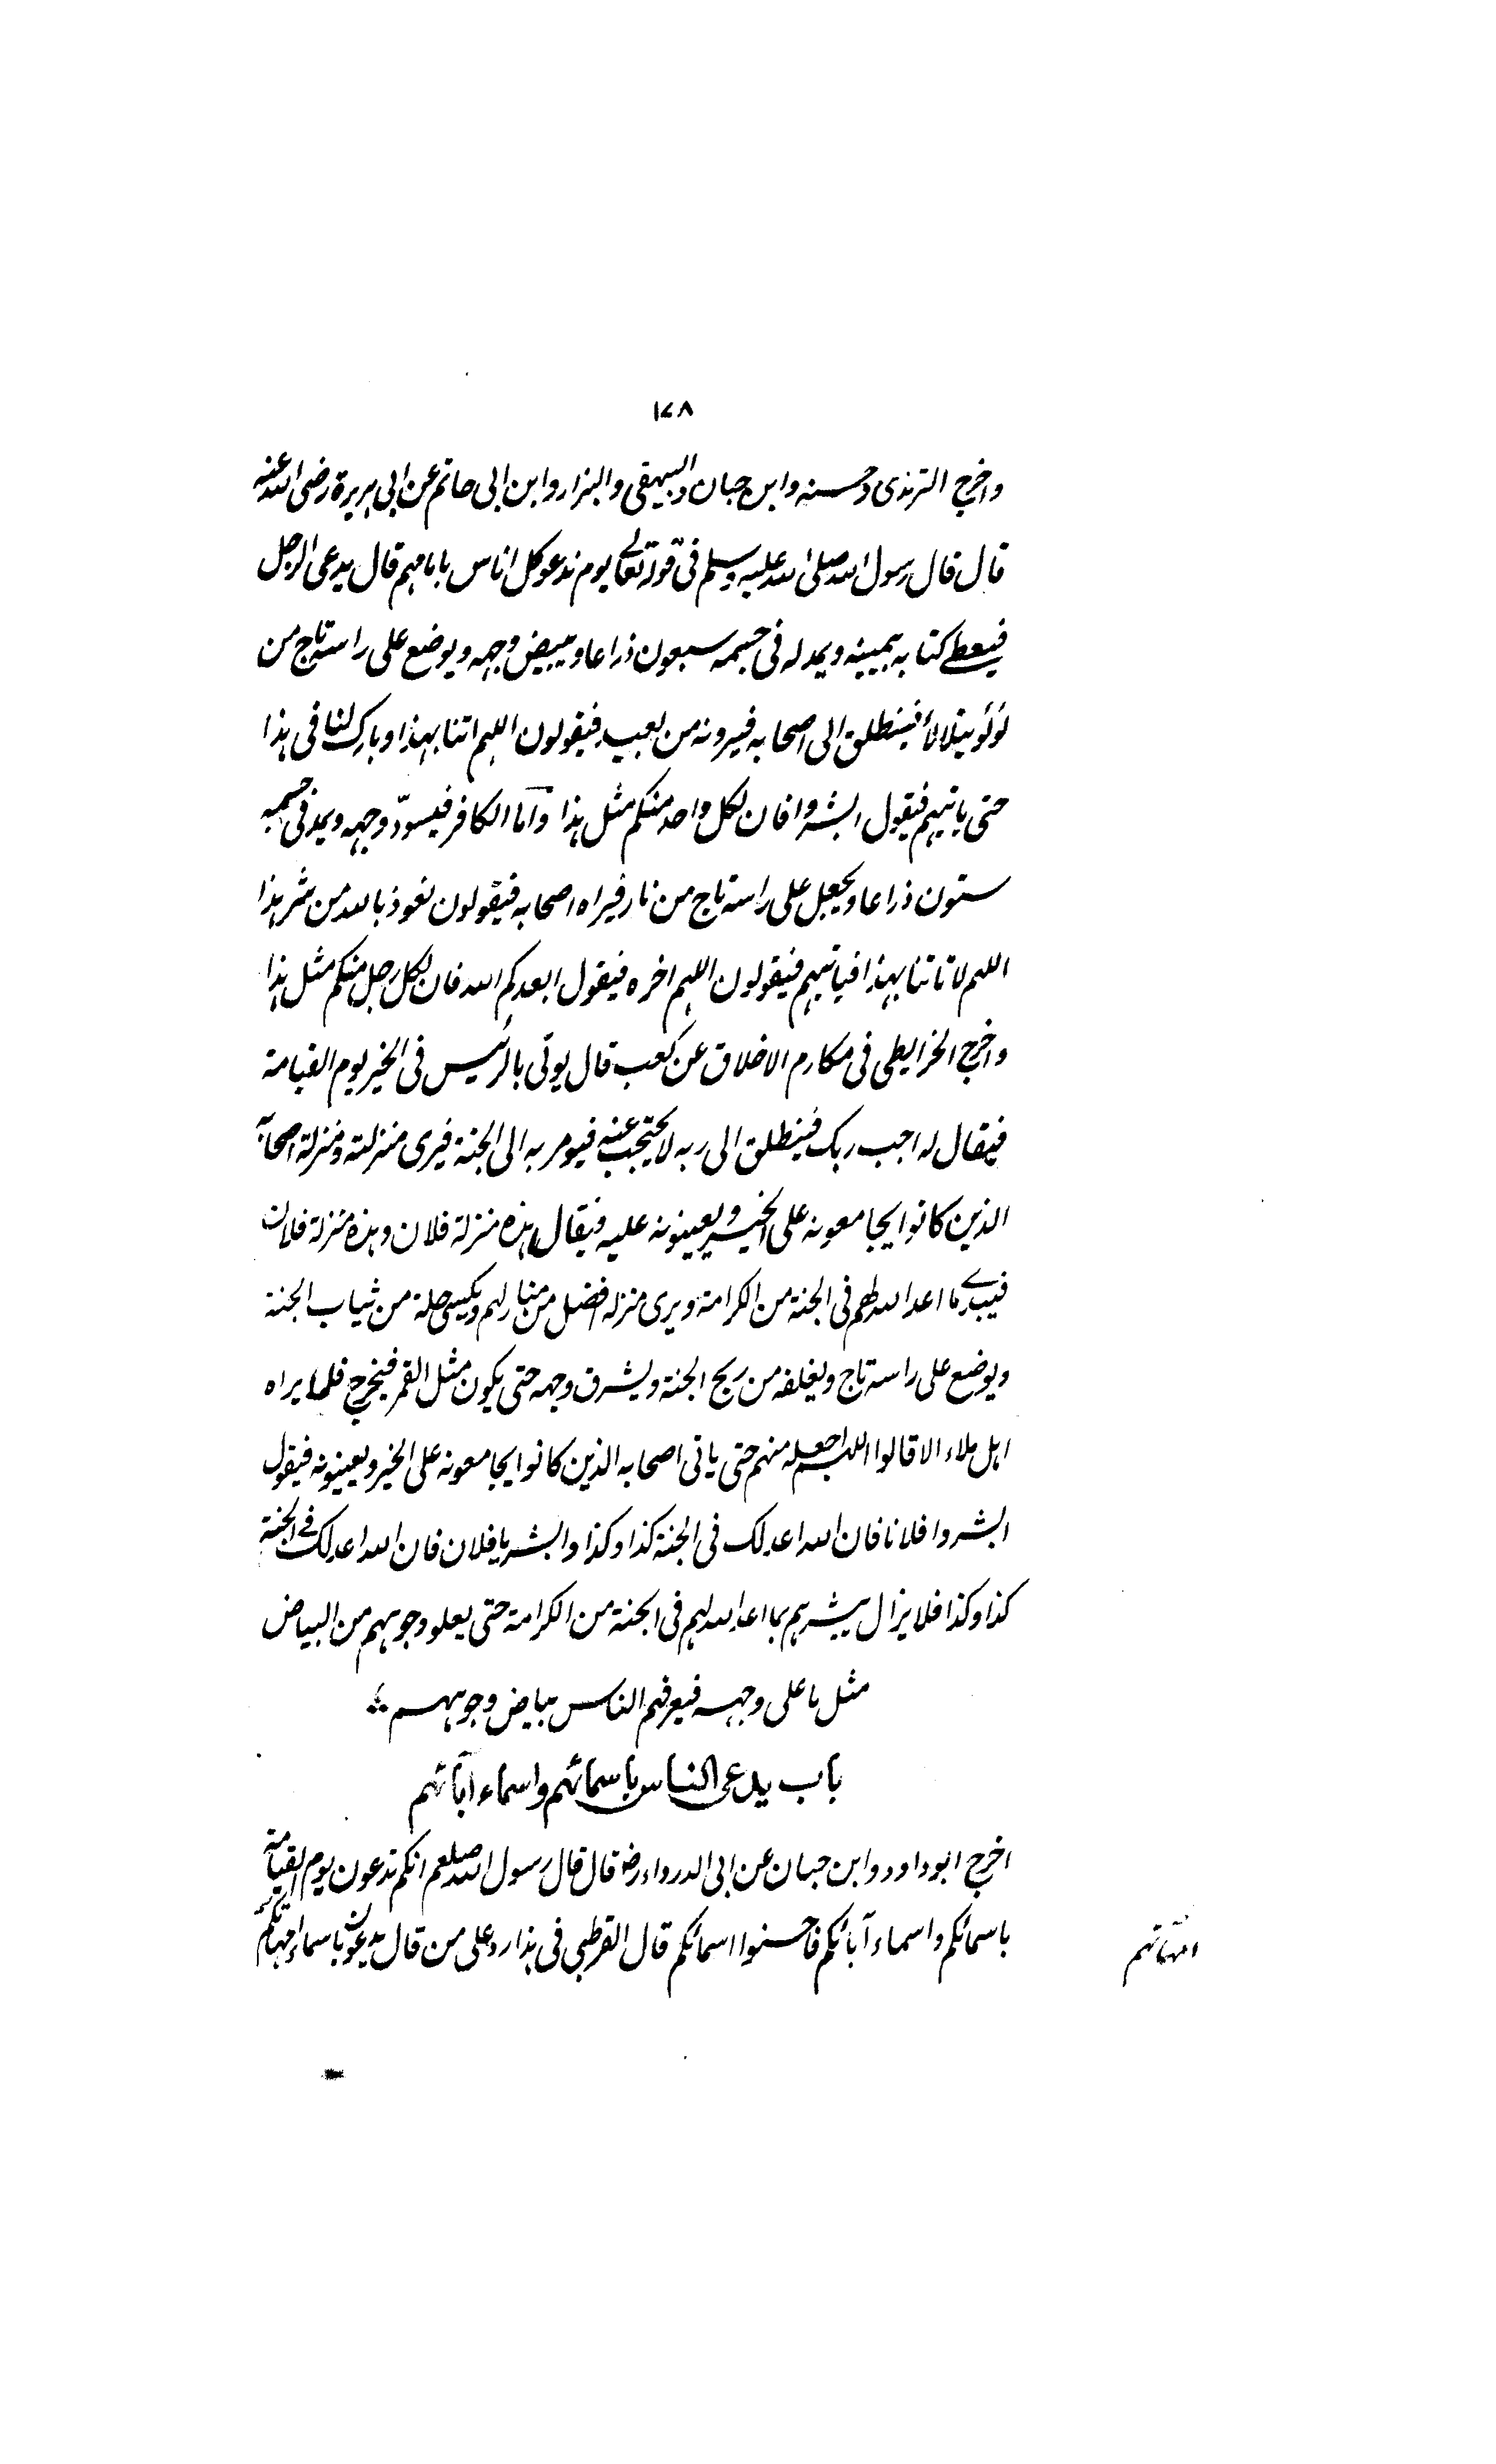 ۱۷۸
واخرج الترمذی وحسنه وابن حبان والبیهقی والبزار وابن ابی حاتم عن ابی هریرة رضی الله عنه
قال قال رسول الله صلی الله علیه وسلم فی قوله تعالے یوم ندعو کل اناس بامامهم قال یدعی الرجل
فیعطے کتابه بیمینه ویمد له فی جسمه سبعون ذراعا ویبیض وجهه ویوضع علی راسه تاج من
لؤلؤ یتلالأ فینطلق الی اصحابه فیرونه من بعید فیقولون اللهم اتنا بهذا وبارک لنا فی هذا
حتی یاتیهم فیقول ابشروا فان لکل واحد منکم مثل هذا واما الکافر فیسودّ وجهه ویمد فی جسمه
ستون ذراعا ویجعل علی راسه تاج من نار فیراه اصحابه فیقولون نعوذ بالله من شر هذا
اللهم لا تاتنا بهذا فیاتیهم فیقولون اللهم اخره فیقول ابعدکم الله فان لکل رجل منکم مثل هذا
واخرج الخرایطی فی مکارم الاخلاق عن کعب قال یوتی بالرئیس فی الخیر یوم القیامة
فیقال له اجب ربک فینطلق الی ربه لا یحتجب عنه فیومر به الی الجنة فیری منزلته ومنزلة اصحابه
الذین کانوا یجامعونه علی الخیر ویعینونه علیه فیقال هذه منزلة فلان وهذه منزلة فلان
فیرے ما اعد الله لهم فی الجنة من الکرامة ویری منزله افضل من منازلهم ویکسی حلة من ثیاب الجنة
ویوضع علی راسه تاج ویغلفه من ریح الجنة ویشرق وجهه حتی یکون مثل القمر فیخرج فلما یراه
اهل ملاء الا قالوا اللهم اجعله منهم حتی یاتی اصحابه الذین کانوا یجامعونه علی الخیر ویعینونه فیقول
ابشر وا فلانا فان الله اعد لک فی الجنة کذا وکذا وابشر یا فلان فان الله اعد لک فے الجنة
کذا وکذا فلا یزال یبشرهم بما اعد الله لهم فی الجنة من الکرامة حتی یعلو وجوههم من البیاض
مثل ما علی وجهه فیعرفهم الناس ببیاض وجوههم
باب یدعی الناس باسمائهم واسماء اٰبائهم
اخرج ابوداود وابن حبان عن ابی الدرداء رض قال قال رسول الله صلعم انکم تدعون یوم القیامة
باسمائکم واسماء آبائکم فاحسنوا اسمائکم قال القرطبی فی هذا رد علی من قال یدعون باسماء امهاتکم
امهاتهم